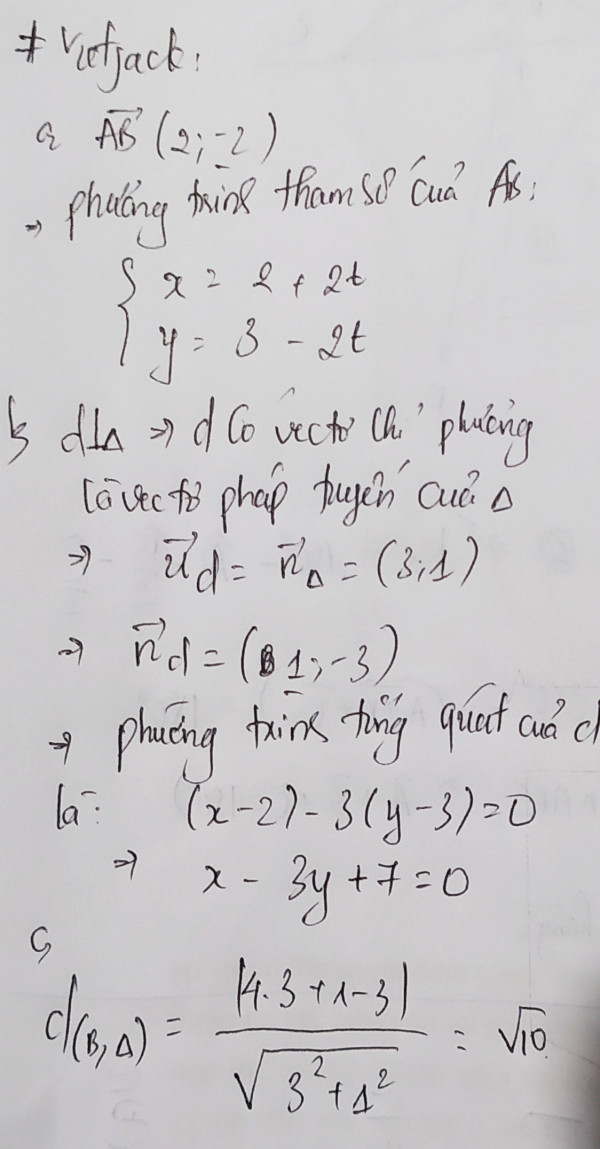 # Vietjack:
a, AB→ (2; -2)
=> phương trình tham số của AB:
{ x = 2 + 2t
y = 3 - 2t
b, d⊥Δ => d có vectơ chỉ phương
là vectơ pháp tuyến của Δ
=> u→d = n→Δ = (3; 1)
=> n→d = (1; -3)
=> phương trình tổng quát của d
là: (x-2) - 3(y-3) = 0
=> x - 3y + 7 = 0
c,
d(B, Δ) = |4.3 + 1 - 3| / √(3² + 1²) = √10